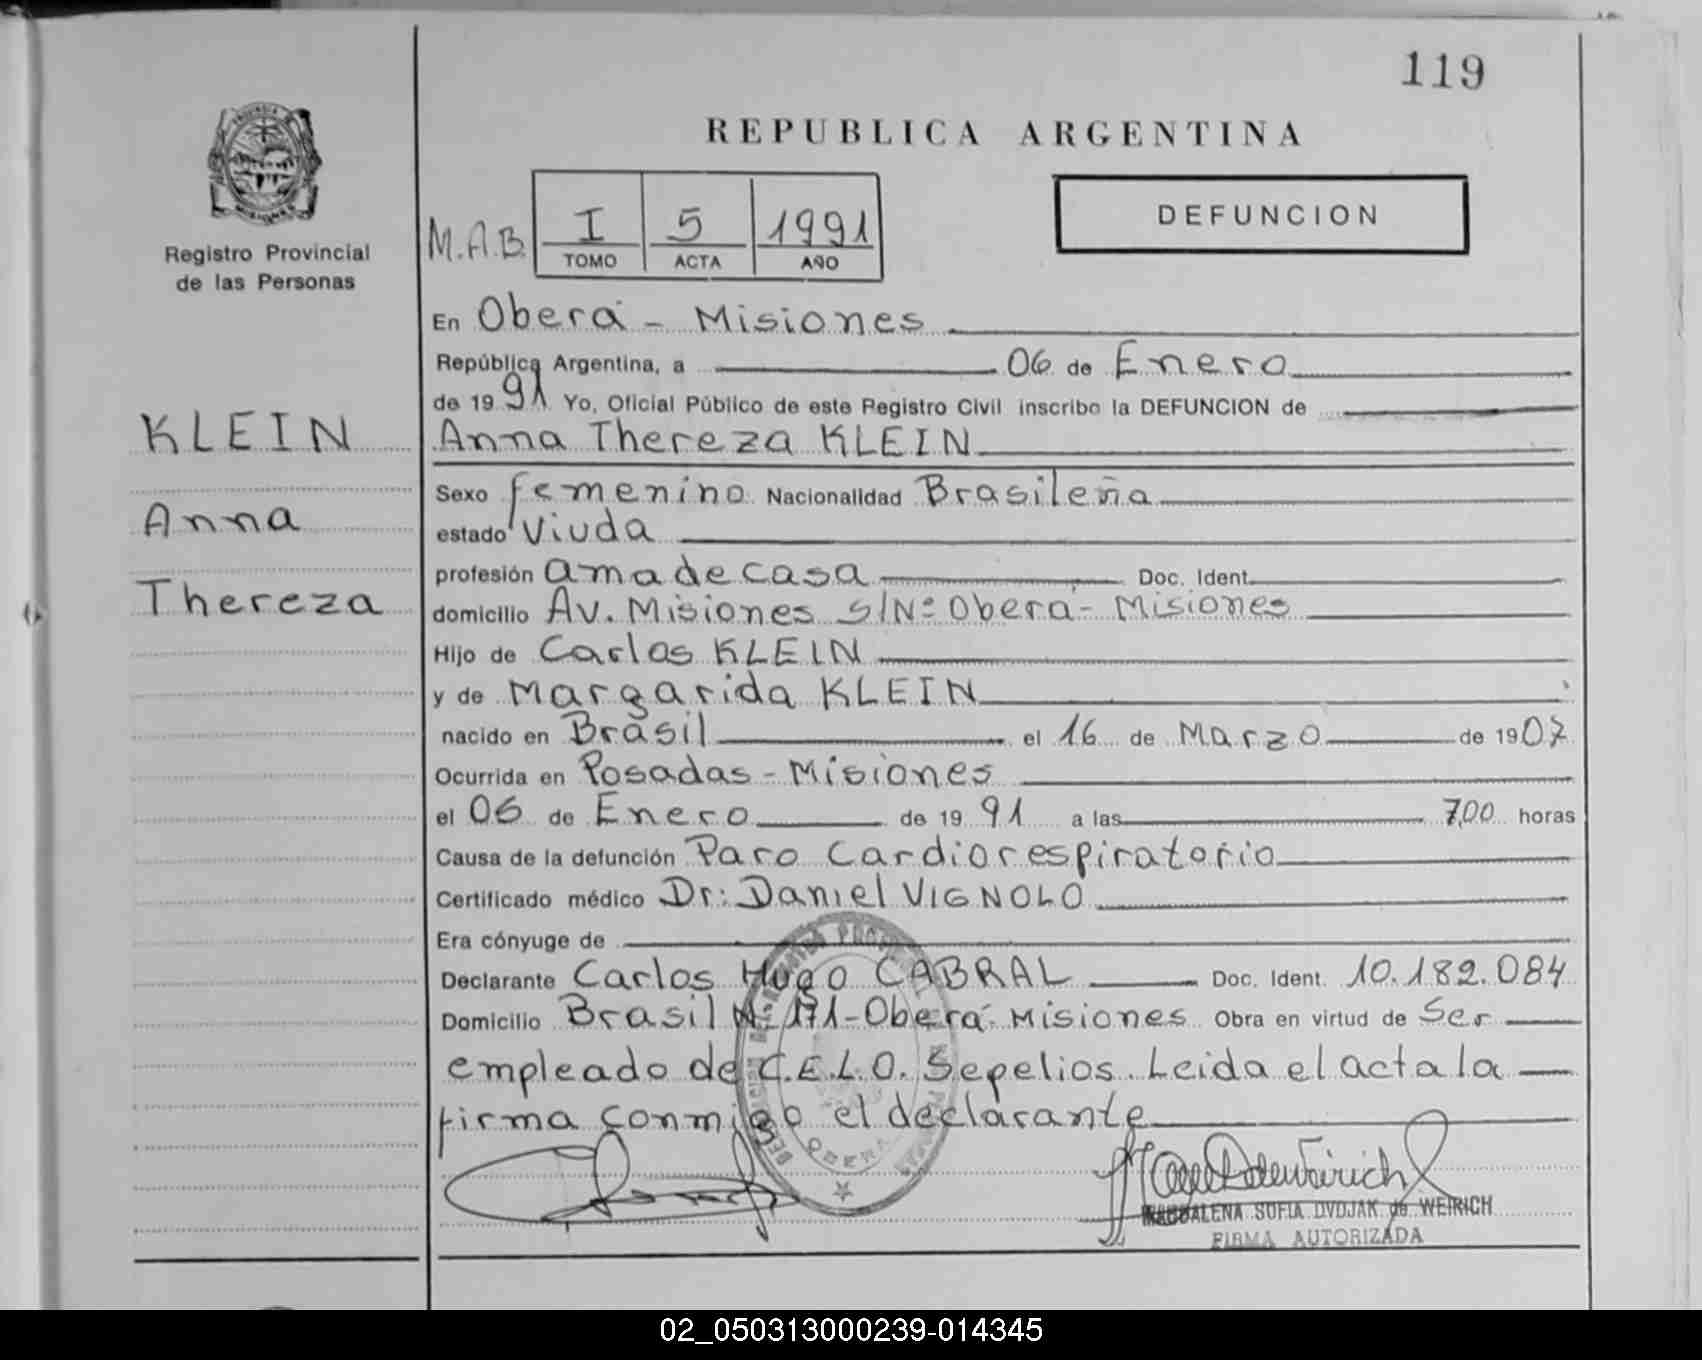 119
REPUBLICA ARGENTINA
Registro Provincial
de las Personas
M.A.B. I 5 1991
TOMO ACTA AÑO
DEFUNCION
En Oberá - Misiones
República Argentina, a 06 de Enero
de 19 91 Yo, Oficial Público de este Registro Civil inscribo la DEFUNCION de
Anna Thereza KLEIN
KLEIN
Anna
Thereza
Sexo femenino Nacionalidad Brasileña
estado Viuda
profesión ama de casa Doc. Ident.
domicilio Av. Misiones S/Nº Oberá - Misiones
Hijo de Carlos KLEIN
y de Margarida KLEIN
nacido en Brasil el 16 de Marzo de 1907
Ocurrida en Posadas - Misiones
el 06 de Enero de 19 91 a las 7,00 horas
Causa de la defunción Paro Cardiorespiratorio
Certificado médico Dr: Daniel VIGNOLO
Era cónyuge de
Declarante Carlos Hugo CABRAL Doc. Ident. 10.182.084
Domicilio Brasil Nº 171 - Oberá - Misiones Obra en virtud de Ser
empleado de C.E.L.O. Sepelios. Leida el acta la
firma conmigo el declarante
OBERA
MAGDALENA SOFIA DVOJAK de WEIRICH
FIRMA AUTORIZADA
02_050313000239-014345